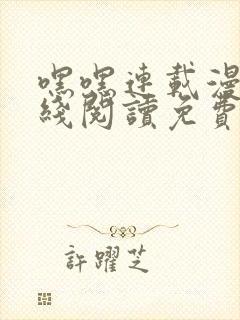 嘿嘿連載漫
綫閱讀免費
許躍芝